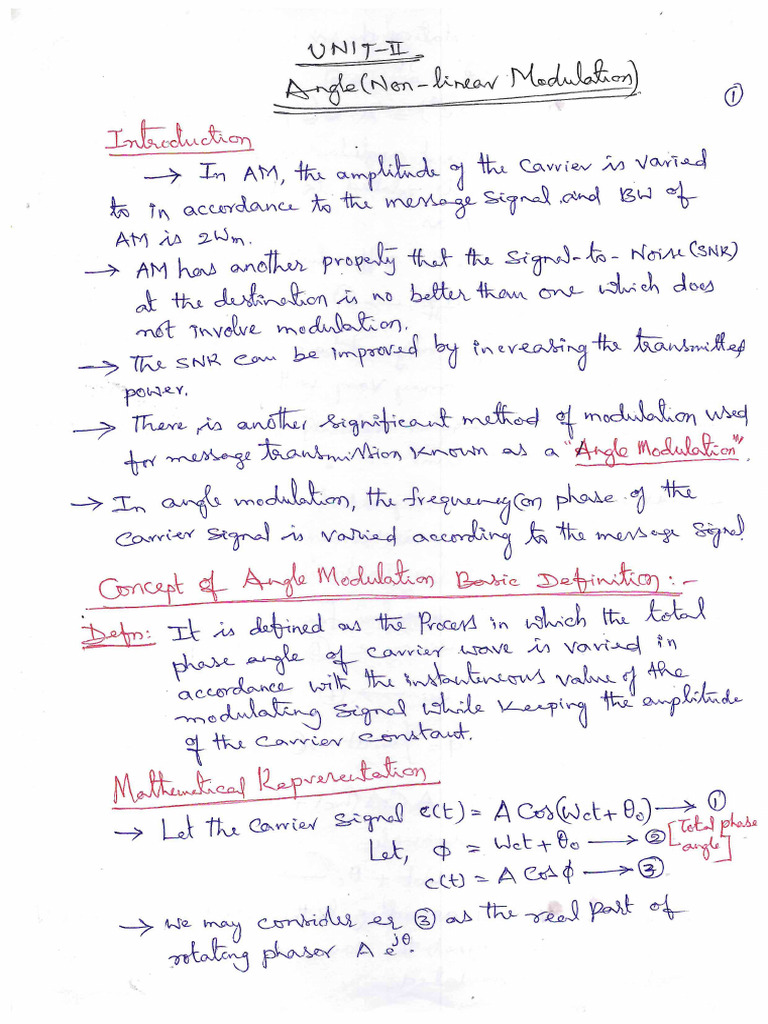 UNIT-II
Angle (Non-linear Modulation)
①
Introduction
→ In AM, the amplitude of the carrier is varied
to in accordance to the message signal and BW of
AM is 2Wm.
→ AM has another property that the Signal-to-Noise (SNR)
at the destination is no better than one which does
not involve modulation.
→ The SNR can be improved by increasing the transmitted
power.
→ There is another significant method of modulation used
for message transmission known as a "Angle Modulation".
→ In angle modulation, the frequency (or) phase of the
carrier signal is varied according to the message signal
Concept of Angle Modulation Basic Definition:-
Defn: It is defined as the Process in which the total
phase angle of carrier wave is varied in
accordance with the instanteneous value of the
modulating signal while keeping the amplitude
of the carrier constant.
Mathemetical Representation
→ Let the carrier signal c(t) = A Cos(Wct + θ0) → ①
Let, ϕ = Wct + θ0 → ② [Total phase angle]
c(t) = A Cosϕ → ③
→ we may consider eq ③ as the real part of
rotating phasor A e^jθ.